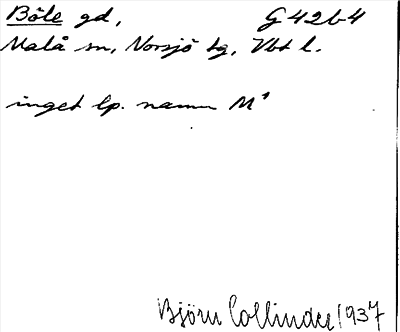 Böle gd, G 42 b 4
Malå sn, Norsjö tg, Vbt l.
inget lp. namn M¹
Björn Collinder 1937